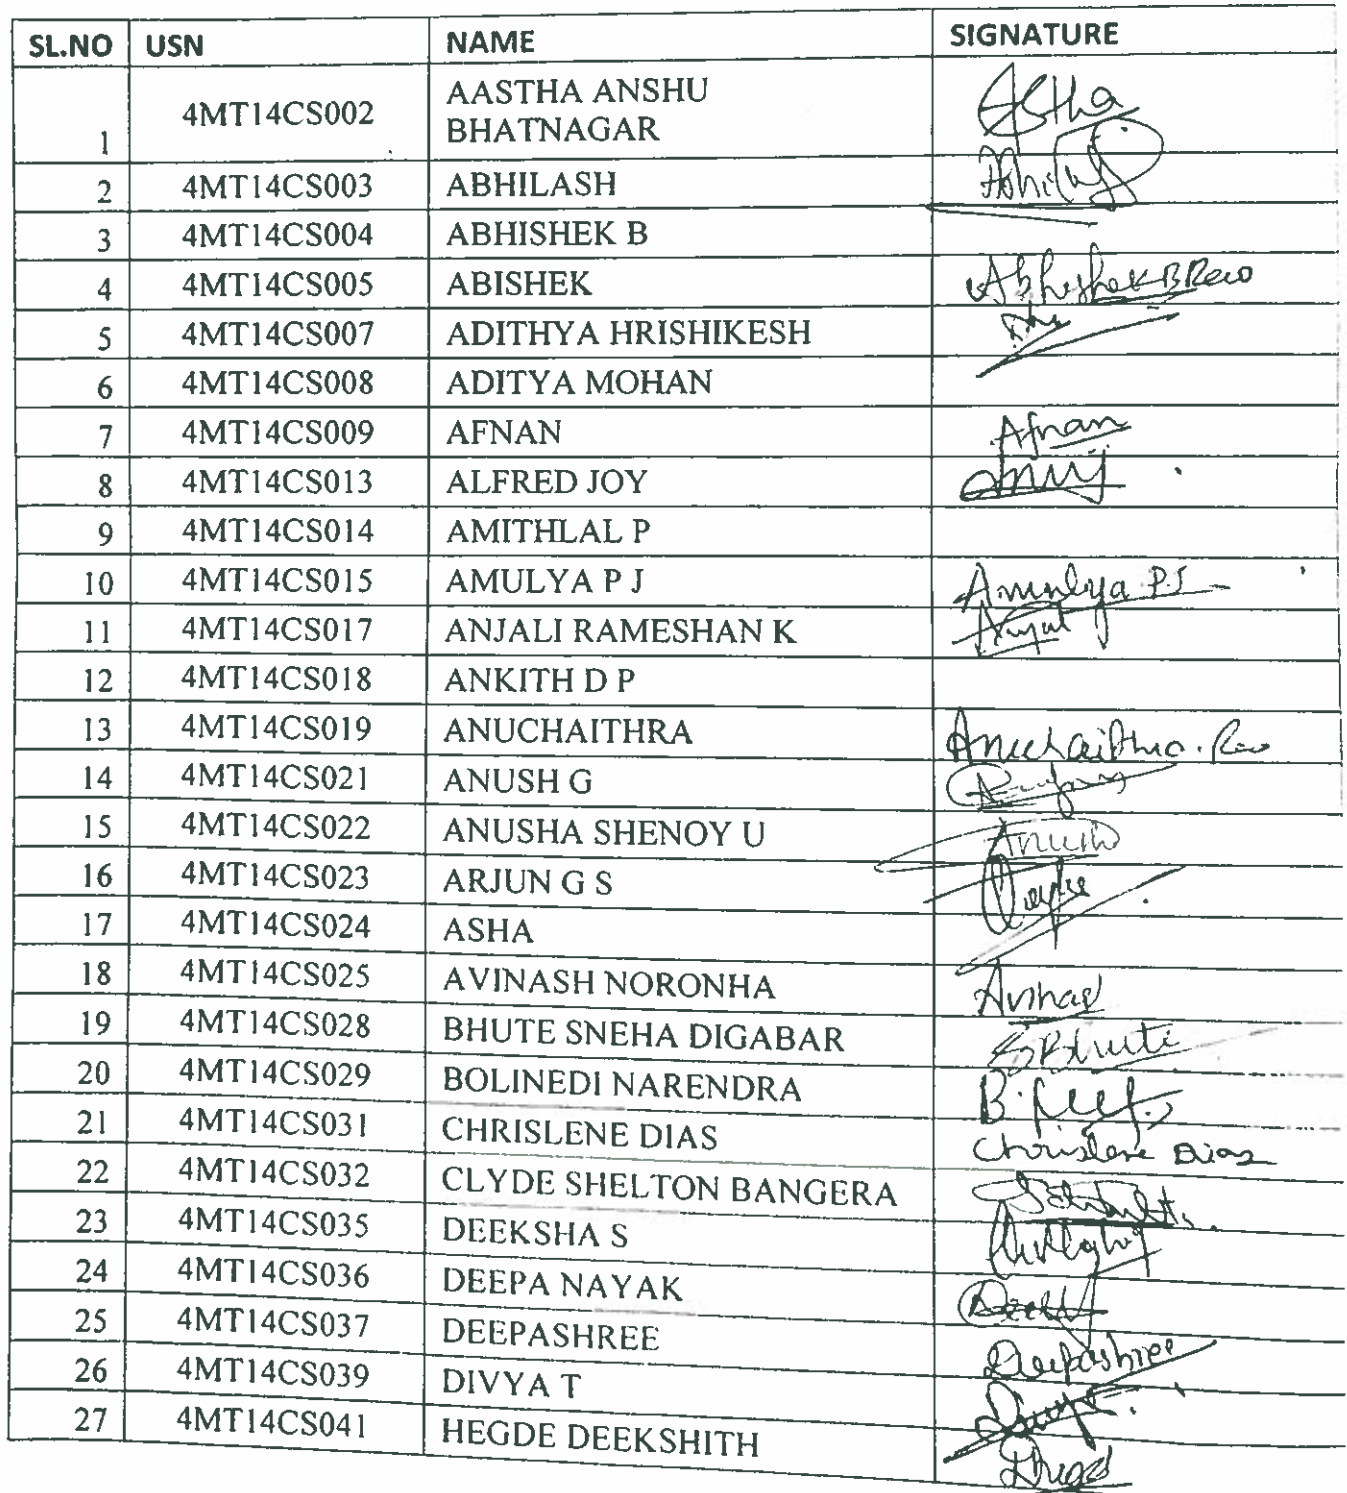 SL.NO USN NAME SIGNATURE
1 4MT14CS002 AASTHA ANSHU
BHATNAGAR Astha
2 4MT14CS003 ABHILASH Abhilash
3 4MT14CS004 ABHISHEK B
4 4MT14CS005 ABISHEK Abhishek B Rao
5 4MT14CS007 ADITHYA HRISHIKESH
6 4MT14CS008 ADITYA MOHAN
7 4MT14CS009 AFNAN Afnan
8 4MT14CS013 ALFRED JOY
9 4MT14CS014 AMITHLAL P
10 4MT14CS015 AMULYA P J Amulya P.J
11 4MT14CS017 ANJALI RAMESHAN K Anjali
12 4MT14CS018 ANKITH D P
13 4MT14CS019 ANUCHAITHRA Anuchaithra. Rao
14 4MT14CS021 ANUSH G
15 4MT14CS022 ANUSHA SHENOY U Anusha
16 4MT14CS023 ARJUN G S
17 4MT14CS024 ASHA
18 4MT14CS025 AVINASH NORONHA Avinash
19 4MT14CS028 BHUTE SNEHA DIGABAR SBhute
20 4MT14CS029 BOLINEDI NARENDRA
21 4MT14CS031 CHRISLENE DIAS Chrislene Dias
22 4MT14CS032 CLYDE SHELTON BANGERA
23 4MT14CS035 DEEKSHA S
24 4MT14CS036 DEEPA NAYAK
25 4MT14CS037 DEEPASHREE Deepashree
26 4MT14CS039 DIVYA T Divya
27 4MT14CS041 HEGDE DEEKSHITH